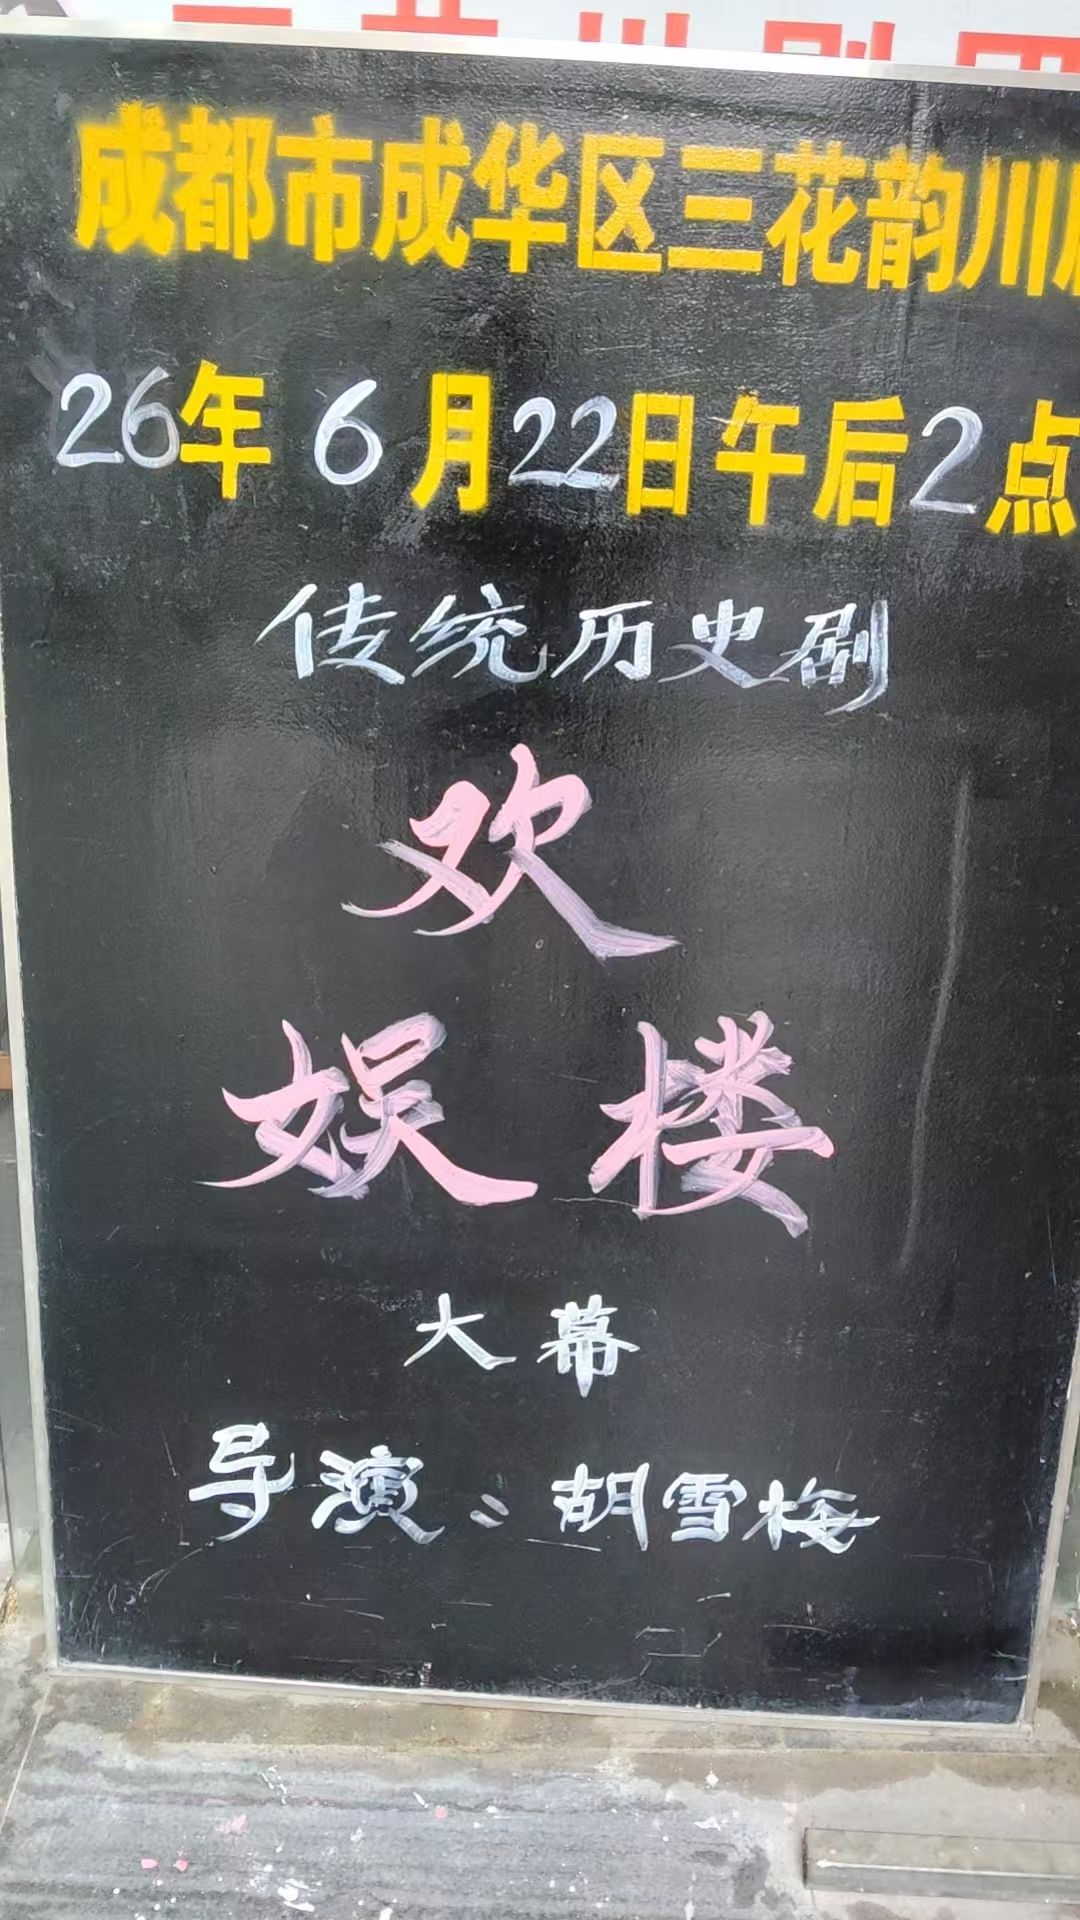 成都市成华区三花韵川
26年6月22日午后2点
传统历史剧
欢
娱楼
大幕
导演：胡雪梅